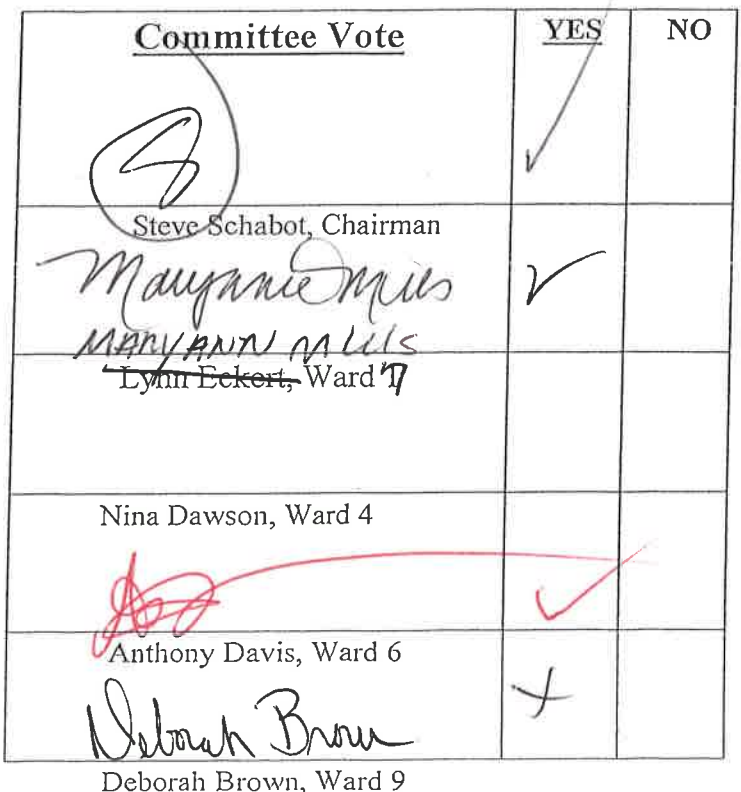 Committee Vote YES NO
✓
Steve Schabot, Chairman
Maryann Mills ✓
MARYANN MILLS
Lynn Eckert, Ward 7
Nina Dawson, Ward 4
✓
Anthony Davis, Ward 6
Deborah Brown +
Deborah Brown, Ward 9